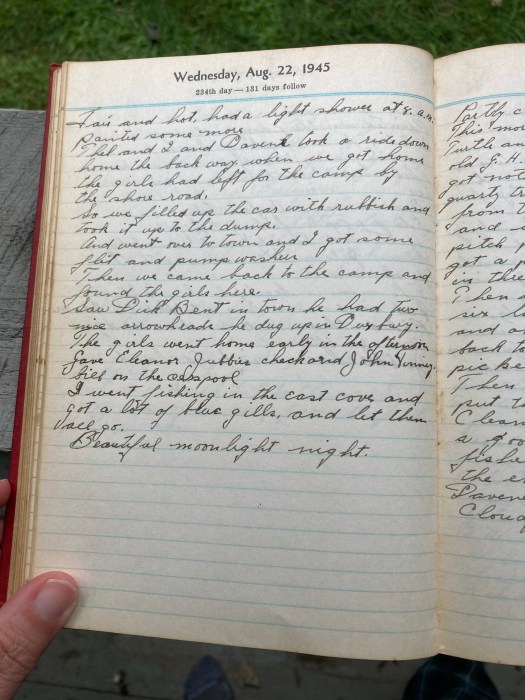 Wednesday, Aug. 22, 1945
234th day — 131 days follow
Fair and hot, had a light shower at 8. a.m.
painted some more
Thel and I and Davene took a ride down
home the back way, when we got home
the girls had left for the camp by
the shore road.
So we filled up the car with rubbish and
took it up to the dump.
And went over to town and I got some
flit and pump washer
Then we came back to the camp and
found the girls here.
Saw Dick Bent in town he had two
nice arrowheads he dug up in Duxbury.
The girls went home early in the afternoon
Gave Eleanor Jubbies check and John
bill on the cesspool
I went fishing in the east cove and
got a lot of blue gills, and let them
all go.
Beautiful moonlight night.
Partly
This mor
Turtle an
old G. H.
got not
quartz
from
and
pitch
got a
in thre
Then
six
and
back to
pic
Then
put
Clean
a goo
fishe
the e
Daven
Cloud